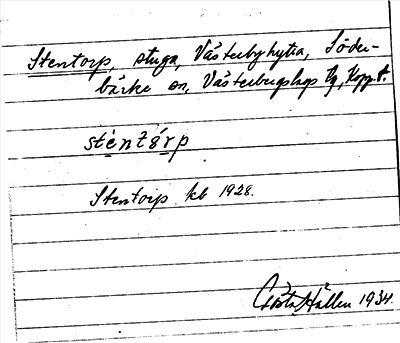 Stentorp, stuga, Västerbyhytta, Söder-
bärke sn, Västerbergslags tg, Kopp. l.
sténtǻrp
Stentorp kb 1928.
Gösta Hållen 1934.